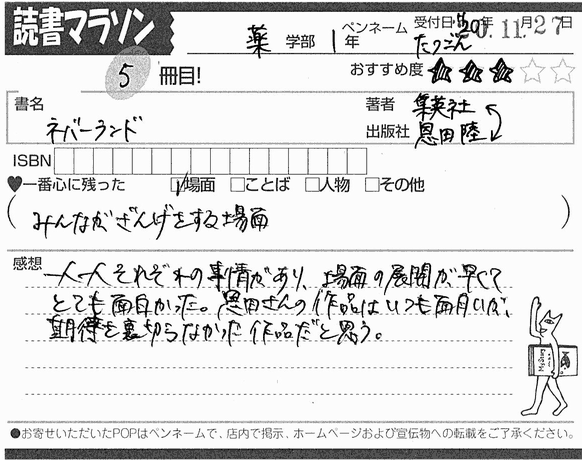 読書マラソン
薬 学部 1年
ペンネーム たつごん
受付日 20年11月27日
5 冊目!
おすすめ度 ★★★☆☆
書名 ネバーランド
著者 集英社
出版社 恩田陸
ISBN
♥一番心に残った ☑場面 □ことば □人物 □その他
(みんながざんげをする場面)
感想
一人一人それぞれの事情があり、場面の展開が早くて
とても面白かった。恩田さんの作品はいつも面白いが、
期待を裏切らなかった作品だと思う。
●お寄せいただいたPOPはペンネームで、店内で掲示、ホームページおよび宣伝物への転載をご了承ください。